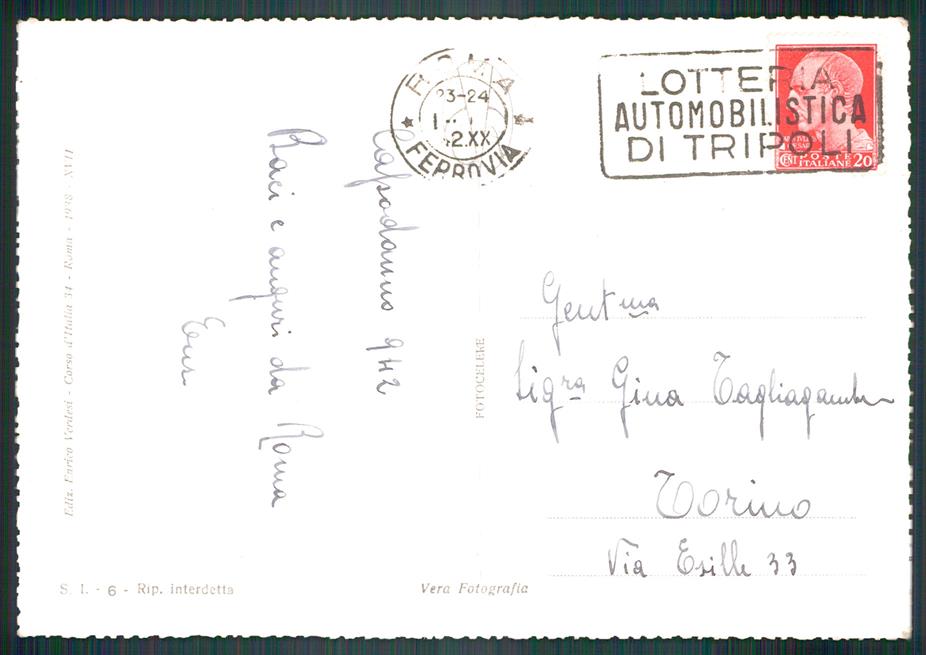 ROMA
23-24
42.XX
FERROVIA
LOTTERIA
AUTOMOBILISTICA
DI TRIPOLI
POSTE
CENT ITALIANE 20
Capodanno 942
Baci e auguri da Roma
Ediz. Enrico Verdesi - Corso d'Italia 34 - Roma - 1938 - XVII
FOTOCELERE
Gentma
Sigra Gina Tagliagambe
Torino
Via Exille 33
S. I. - 6 - Rip. interdetta
Vera Fotografia